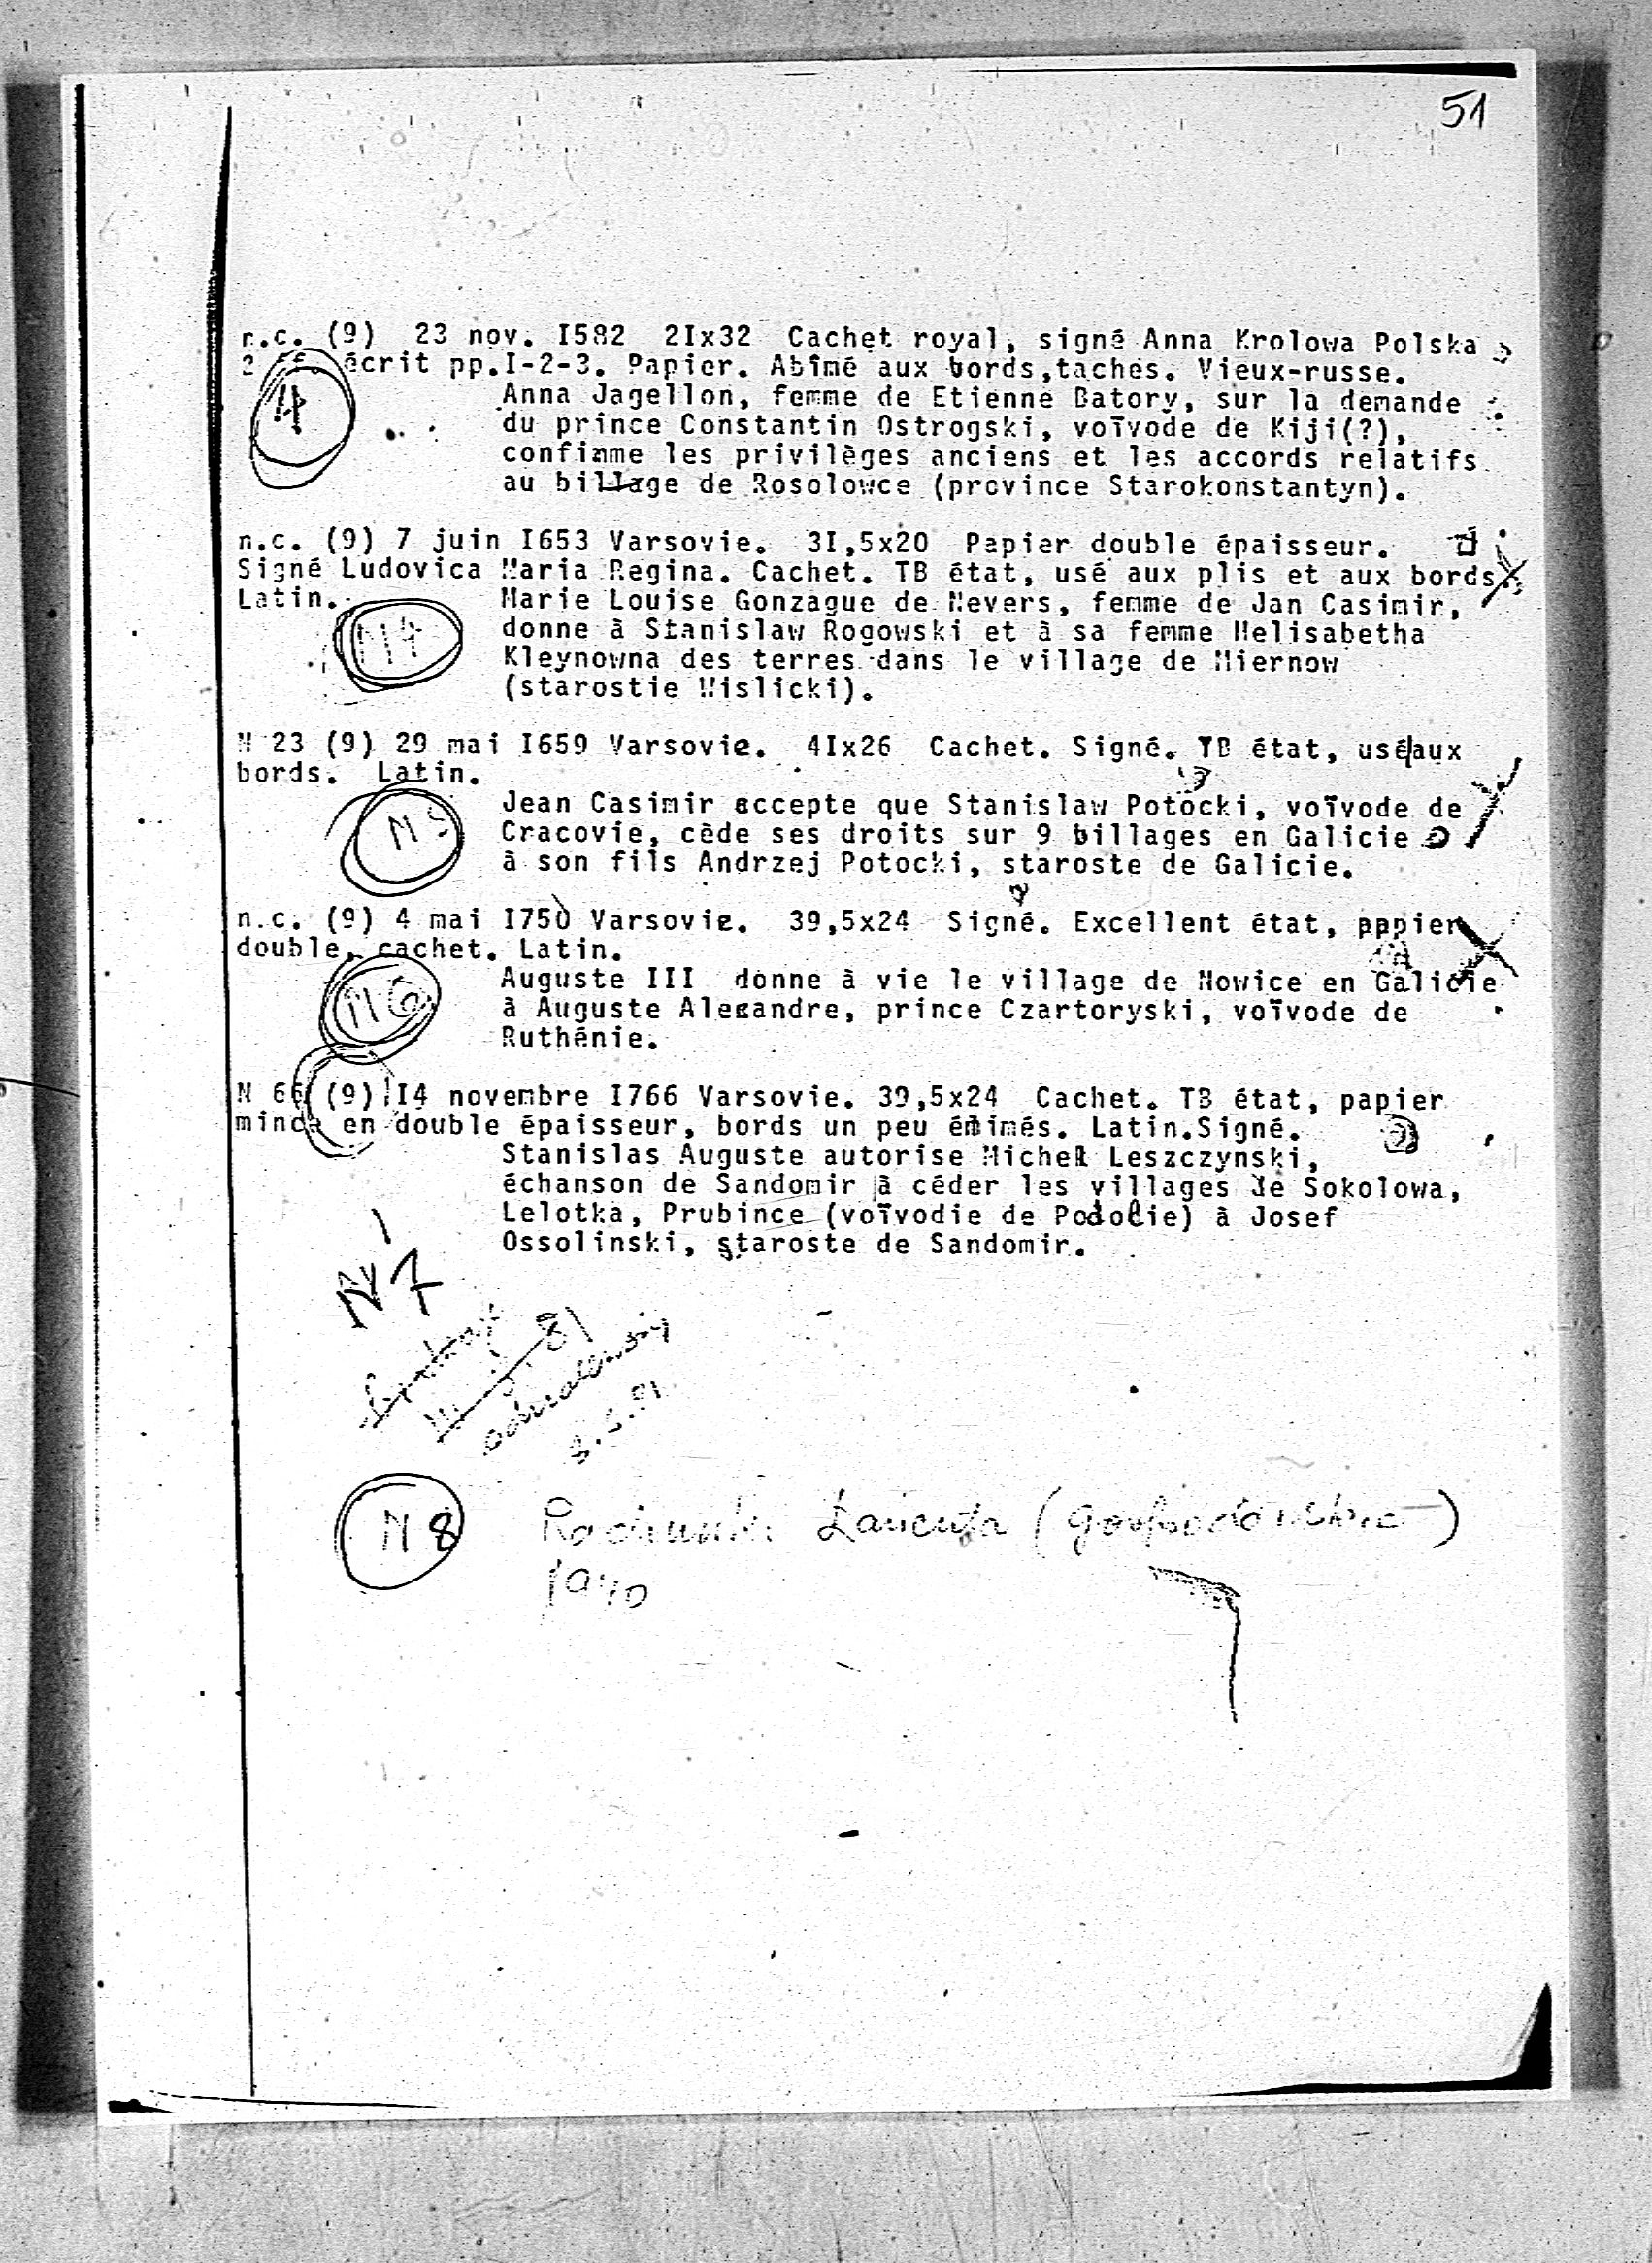 51
n.c. (9) 23 nov. I582 2Ix32 Cachet royal, signé Anna Krolowa Polska
2 ff. écrit pp.I-2-3. Papier. Abîmé aux bords,taches. Vieux-russe.
Anna Jagellon, femme de Etienne Batory, sur la demande
du prince Constantin Ostrogski, voïvode de Kiji(?),
confimme les privilèges anciens et les accords relatifs
au billage de Rosolowce (province Starokonstantyn).
n.c. (9) 7 juin I653 Varsovie. 3I,5x20 Papier double épaisseur.
Signé Ludovica Maria Regina. Cachet. TB état, usé aux plis et aux bords.
Latin. Marie Louise Gonzague de Nevers, femme de Jan Casimir,
N4 donne à Stanislaw Rogowski et à sa femme Helisabetha
Kleynowna des terres dans le village de Miernow
(starostie Wislicki).
N 23 (9) 29 mai I659 Varsovie. 4Ix26 Cachet. Signé. TB état, usé aux
bords. Latin.
Jean Casimir accepte que Stanislaw Potocki, voïvode de
N5 Cracovie, cède ses droits sur 9 billages en Galicie
à son fils Andrzej Potocki, staroste de Galicie.
n.c. (9) 4 mai I750 Varsovie. 39,5x24 Signé. Excellent état, papier
double, cachet. Latin.
Auguste III donne à vie le village de Nowice en Galicie
N6 à Auguste Alexandre, prince Czartoryski, voïvode de
Ruthénie.
N 66 (9) I4 novembre I766 Varsovie. 39,5x24 Cachet. TB état, papier
mince en double épaisseur, bords un peu élimés. Latin.Signé.
Stanislas Auguste autorise Michel Leszczynski,
échanson de Sandomir à céder les villages de Sokolowa,
Lelotka, Prubince (voïvodie de Podolie) à Josef
Ossolinski, staroste de Sandomir.
N7
81
N8 Rachunki Łańcuta (gospodarskie)